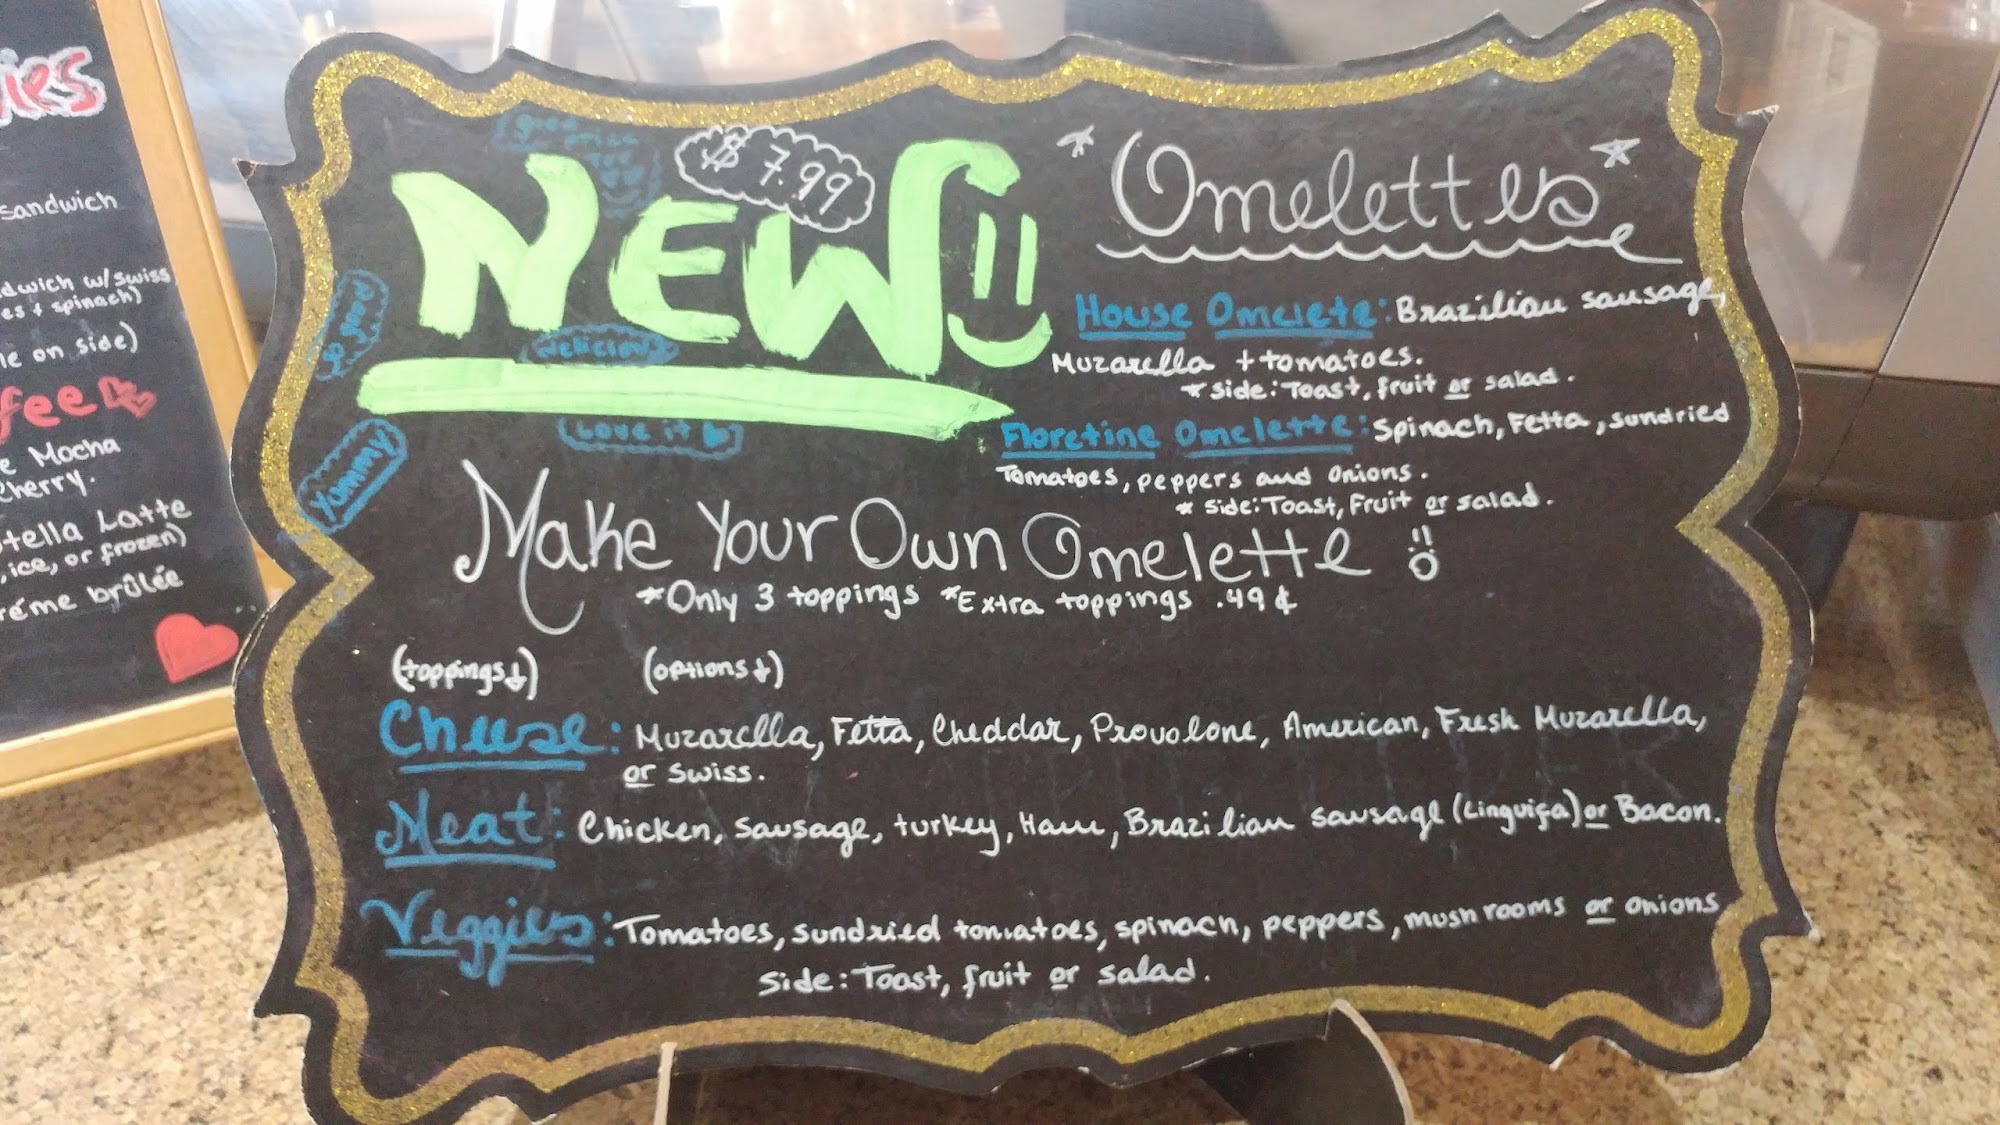 ies
sandwich
dwich w/swiss,
es + spinach)
le on side)
fee
e Mocha
cherry.
tella Latte
, ice, or frozen)
réme brûlée
good
price
too
$7.99
NEW
so good
Delicious
Love it
Yummy
*Omelettes*
House Omelete: Brazilian sausage,
Muzarella + tomatoes.
* side: Toast, fruit or salad.
Floretine Omelette: Spinach, Fetta, sundried
Tomatoes, peppers and onions.
* side: Toast, Fruit or salad.
Make Your Own Omelette
*Only 3 toppings *Extra toppings .49¢
(toppings↓) (options↓)
Cheese: Muzarella, Fetta, Cheddar, Provolone, American, Fresh Muzarella,
or swiss.
Meat: Chicken, sausage, turkey, Ham, Brazilian sausage (Linguiça) or Bacon.
Veggies: Tomatoes, sundried tomatoes, spinach, peppers, mushrooms or onions
side: Toast, fruit or salad.